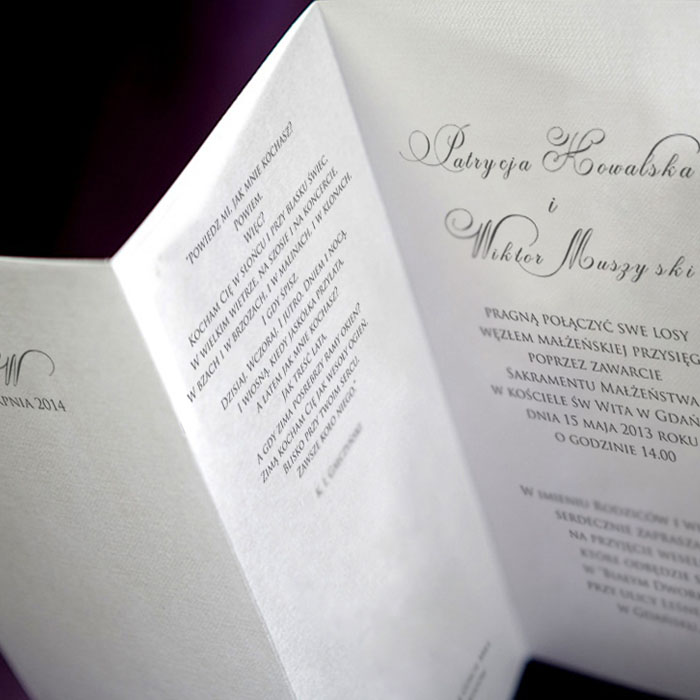 W
RPNIA 2014
"POWIEDZ MI, JAK MNIE KOCHASZ?
POWIEM.
WIĘC?
KOCHAM CIĘ W SŁOŃCU I PRZY BLASKU ŚWIEC.
W WIELKIM WIETRZE, NA SZOSIE I NA KONCERCIE.
W BZACH I W BRZOZACH, I W MALINACH, I W KLONACH.
I GDY ŚPISZ.
DZISIAJ, WCZORAJ, I JUTRO. DNIEM I NOCĄ.
I WIOSNĄ, KIEDY JASKÓŁKA PRZYLATA.
A LATEM JAK MNIE KOCHASZ?
JAK TREŚĆ LATA.
A GDY ZIMA POSREBRZY RAMY OKIEN?
ZIMĄ KOCHAM CIĘ JAK WESOŁY OGIEŃ.
BLISKO PRZY TWOIM SERCU.
ZAWSZE KOŁO NIEGO."
K. I. GAŁCZYŃSKI
Patrycja Kowalska
i
Wiktor Muszy ski
PRAGNĄ POŁĄCZYĆ SWE LOSY
WĘZŁEM MAŁŻEŃSKIEJ PRZYSIĘG
POPRZEZ ZAWARCIE
SAKRAMENTU MAŁŻEŃSTWA
W KOŚCIELE ŚW WITA W GDAŃ
DNIA 15 MAJA 2013 ROKU
O GODZINIE 14.00
W IMIENIU RODZICÓW I W
SERDECZNIE ZAPRASZA
NA PRZYJĘCIE WESEL
KTÓRE ODBĘDZIE
W "BIAŁYM DWOR
PRZY ULICY LEŚN
W GDAŃSKU